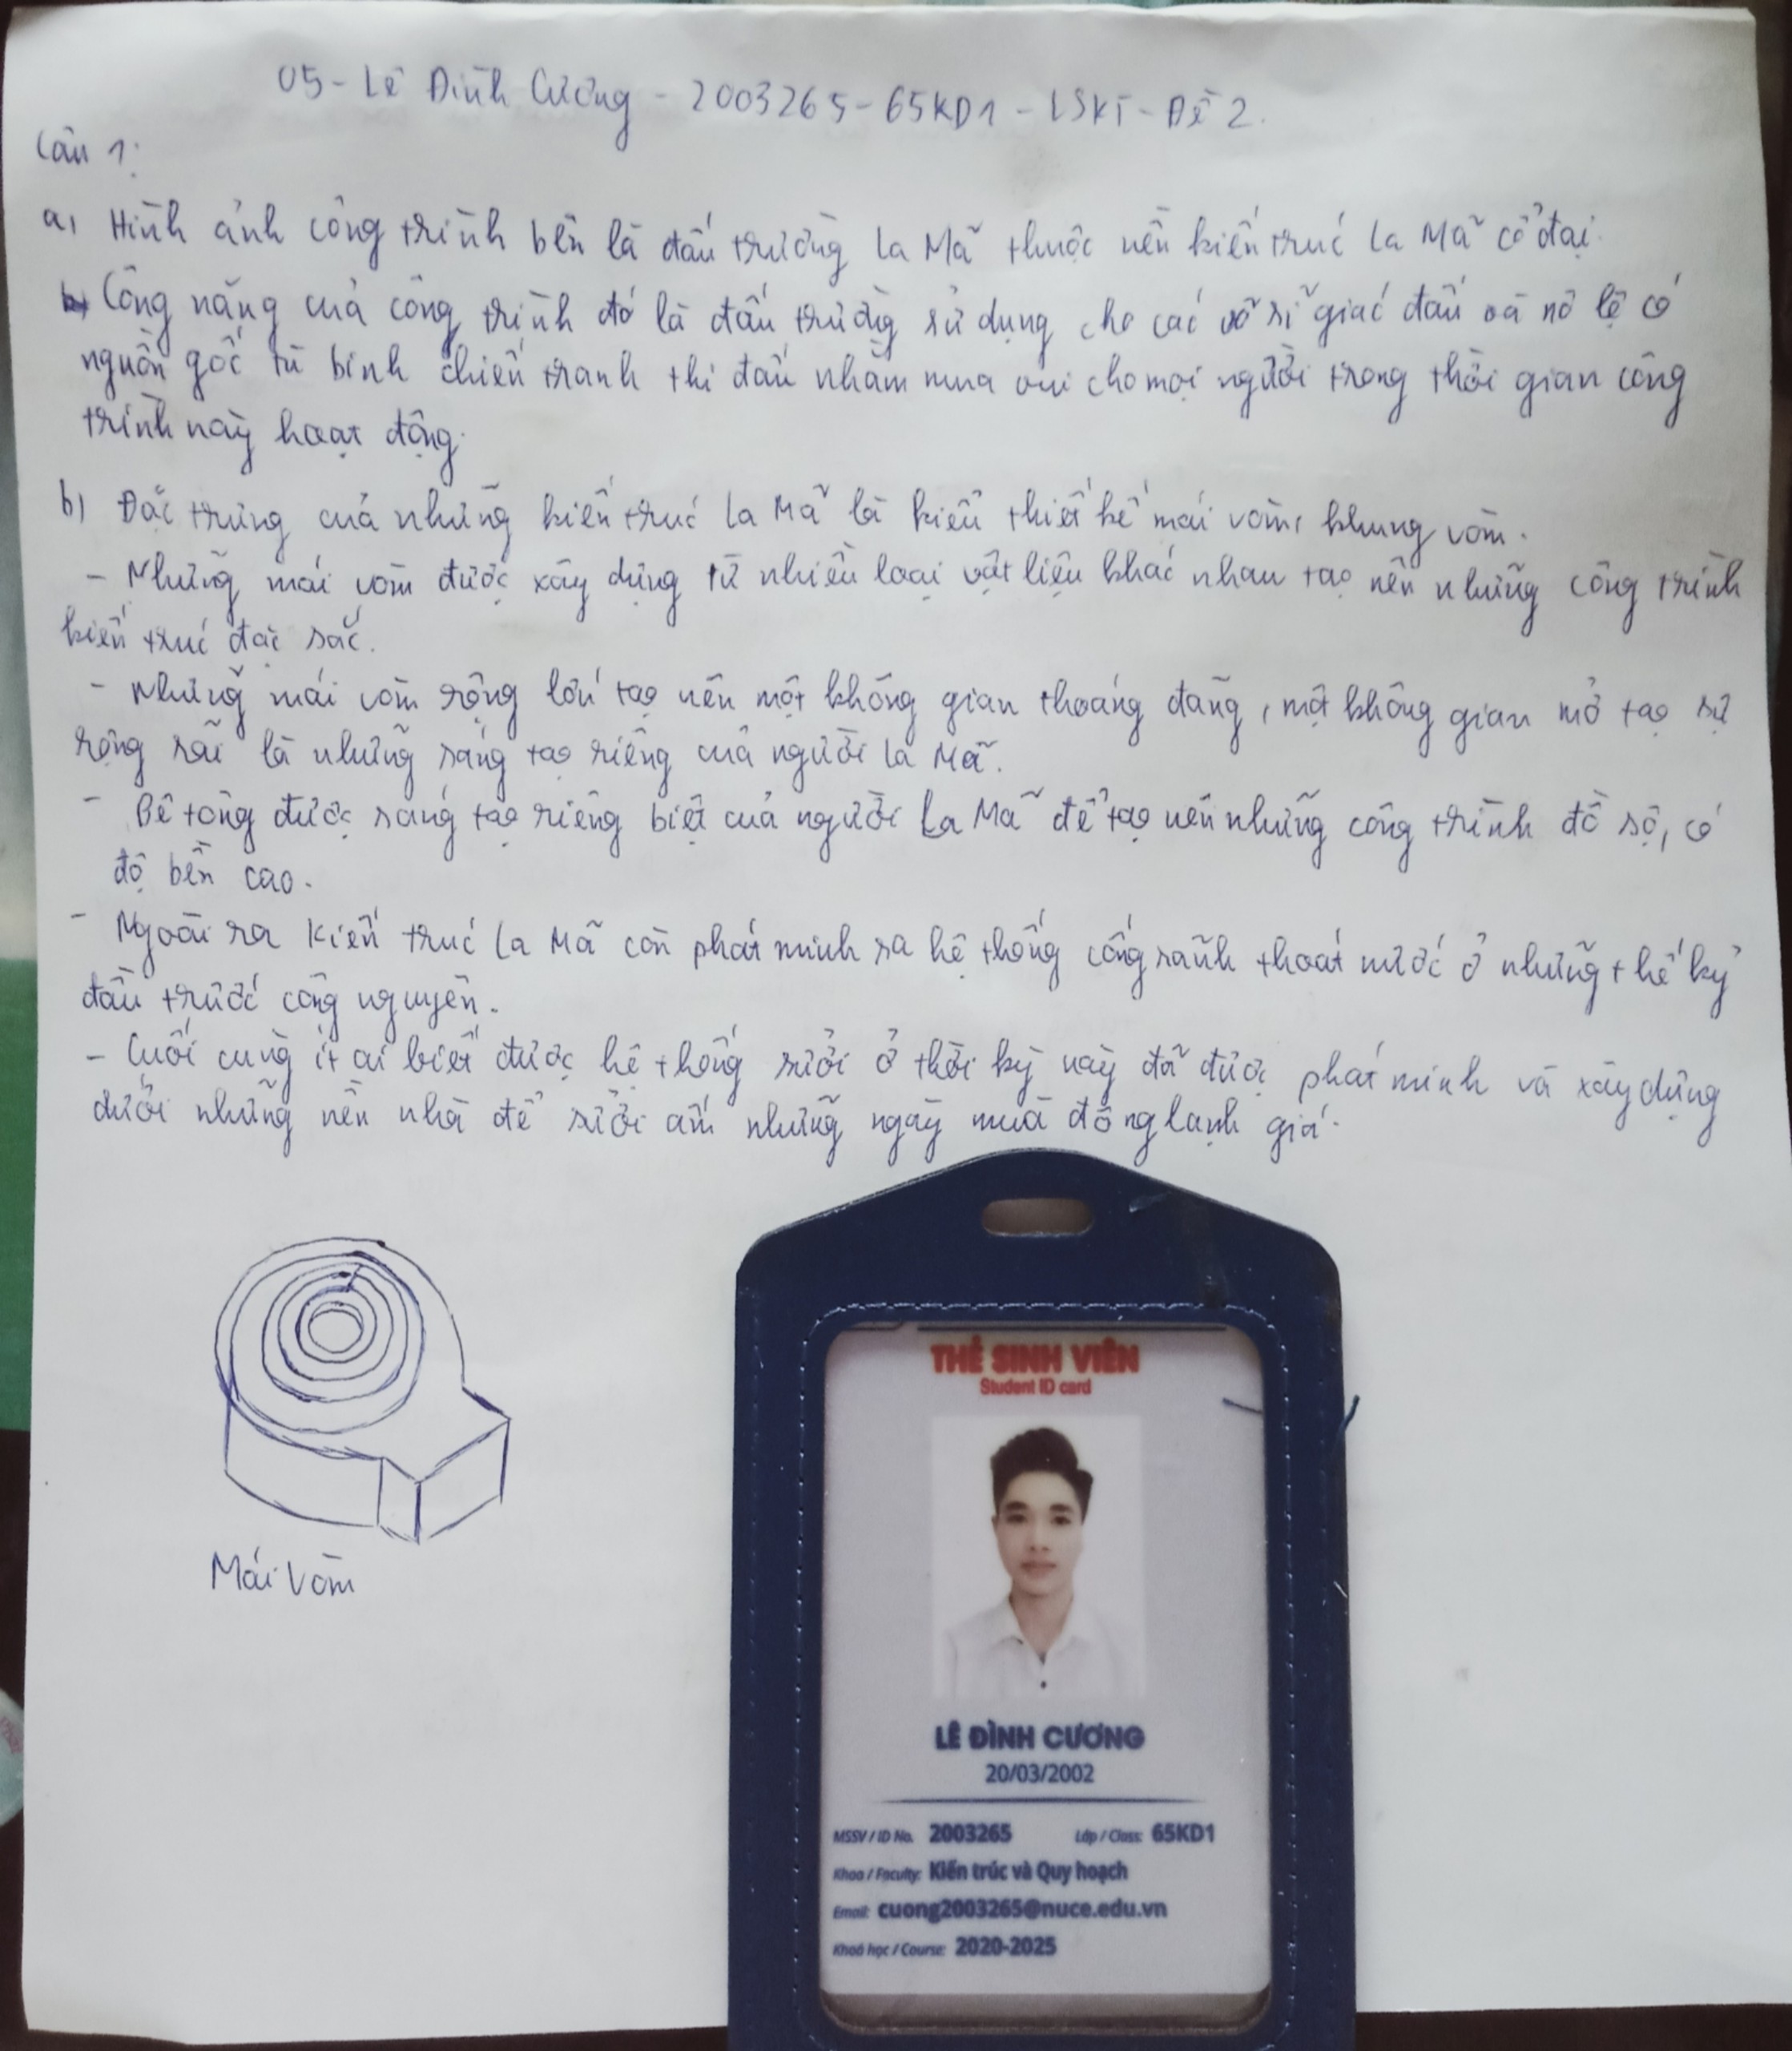 05 - Lê Đình Cương - 2003265 - 65KD1 - LSKT - Đề 2.
Câu 1:
a, Hình ảnh công trình bên là đấu trường La Mã thuộc nền kiến trúc La Mã cổ đại.
Công năng của công trình đó là đấu trường sử dụng cho các võ sĩ giác đấu và nô lệ có
nguồn gốc từ binh chiến tranh thi đấu nhằm mua vui cho mọi người trong thời gian công
trình này hoạt động.
b, Đặc trưng của những kiến trúc La Mã là kiểu thiết kế mái vòm, khung vòm.
- Những mái vòm được xây dựng từ nhiều loại vật liệu khác nhau tạo nên những công trình
kiến trúc đặc sắc.
- Những mái vòm rộng lớn tạo nên một không gian thoáng đãng, một không gian mở tạo sự
rộng rãi là những sáng tạo riêng của người La Mã.
- Bê tông được sáng tạo riêng biệt của người La Mã để tạo nên những công trình đồ sộ, có
độ bền cao.
- Ngoài ra kiến trúc La Mã còn phát minh ra hệ thống cống rãnh thoát nước ở những thế kỷ
đầu trước công nguyên.
- Cuối cùng ít ai biết được hệ thống sưởi ở thời kỳ này đã được phát minh và xây dựng
dưới những nền nhà để sưởi ấm những ngày mùa đông lạnh giá.
Mái vòm
THẺ SINH VIÊN
Student ID card
LÊ ĐÌNH CƯƠNG
20/03/2002
MSSV / ID No. 2003265 Lớp / Class: 65KD1
Khoa / Faculty: Kiến trúc và Quy hoạch
Email: cuong2003265@nuce.edu.vn
Khoá học / Course: 2020-2025